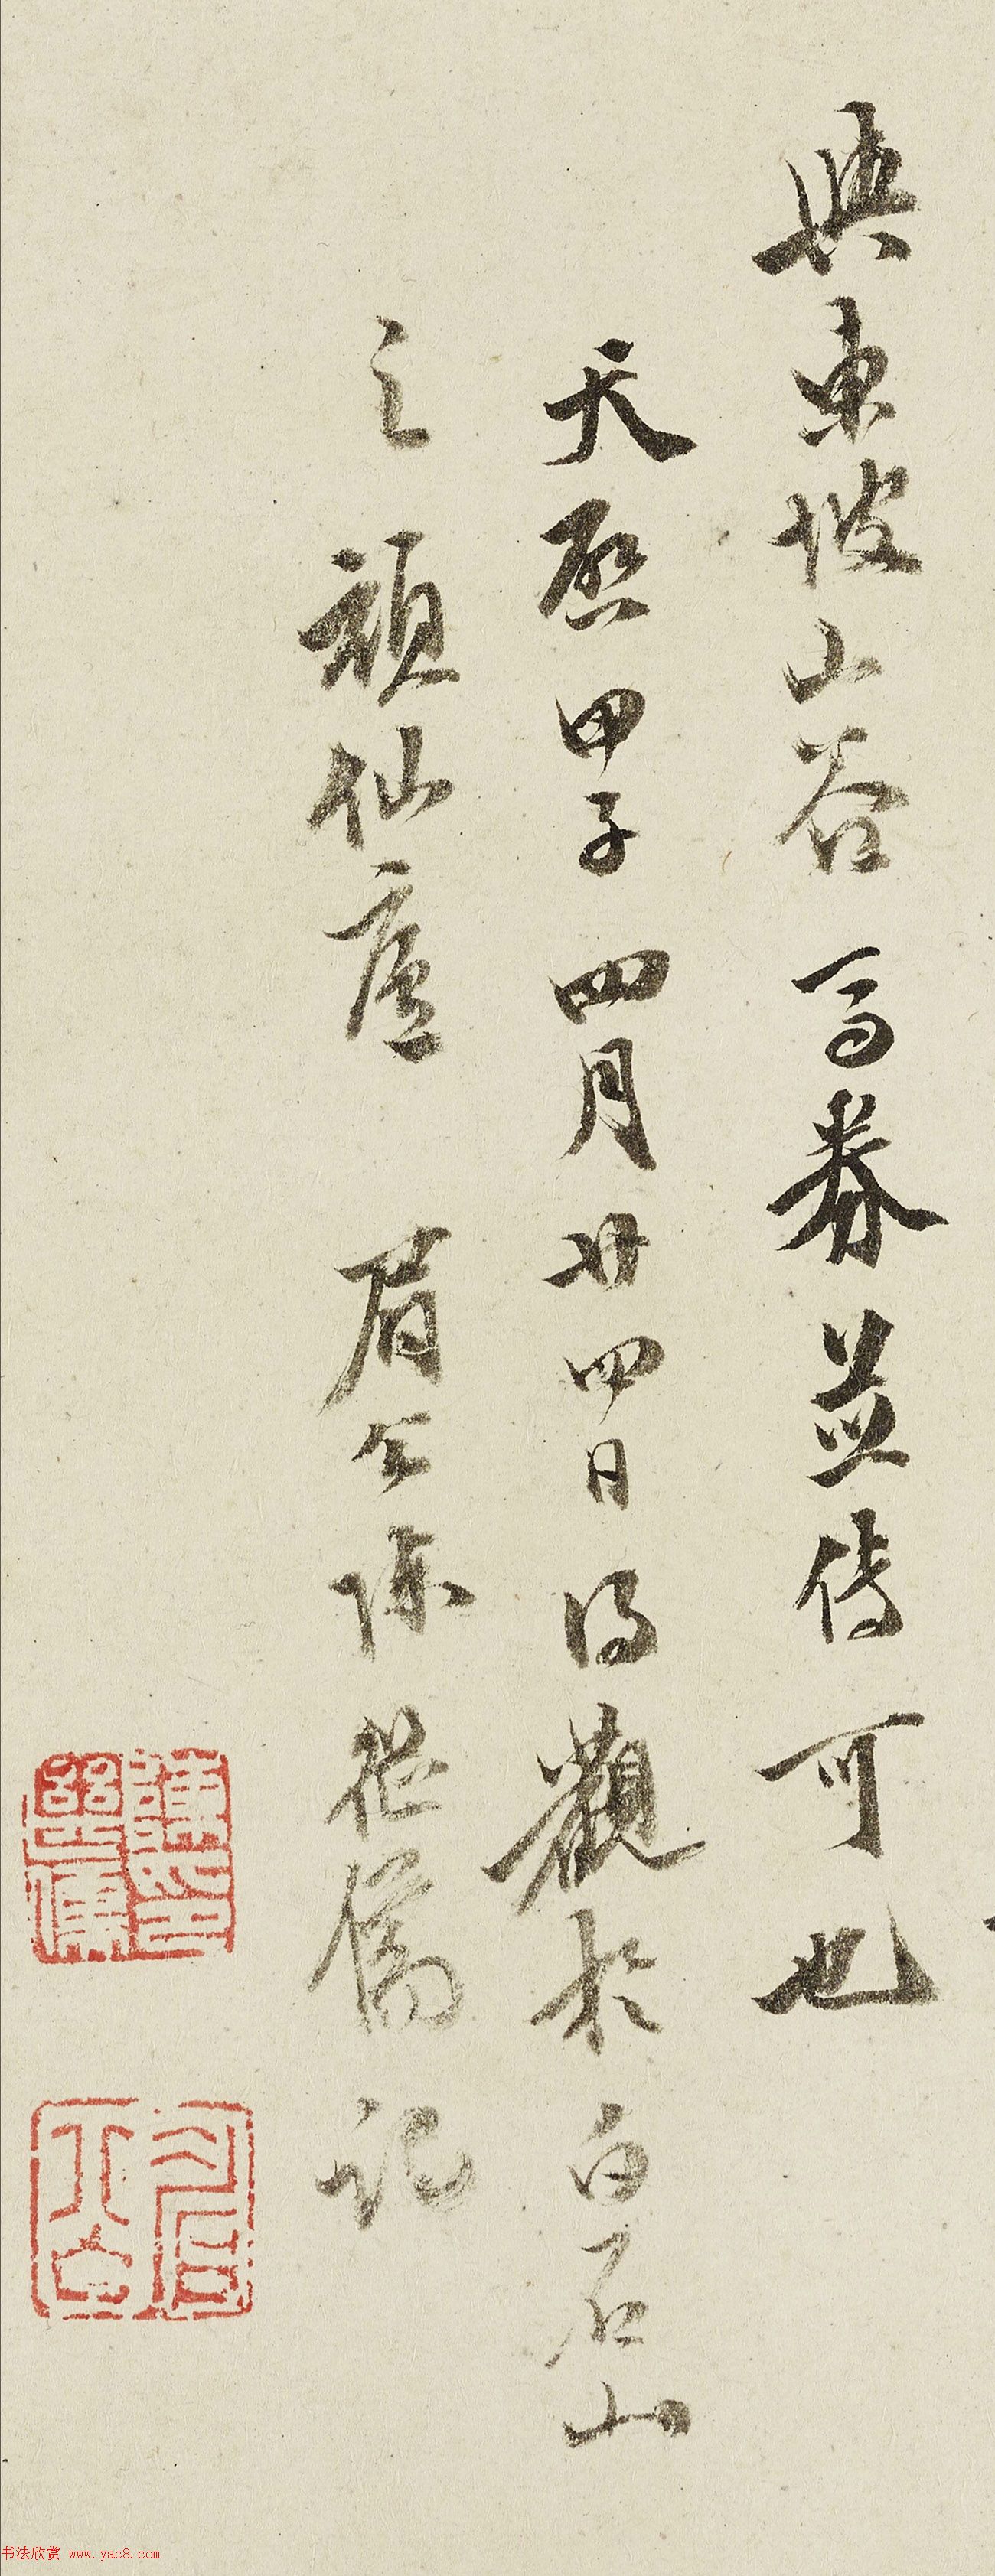 與東坡山谷马券並传可也
天啓甲子四月廿四日得觀於白石山
之頑仙廬 眉公陳繼儒記
眉公
书法欣赏 www.yac8.com